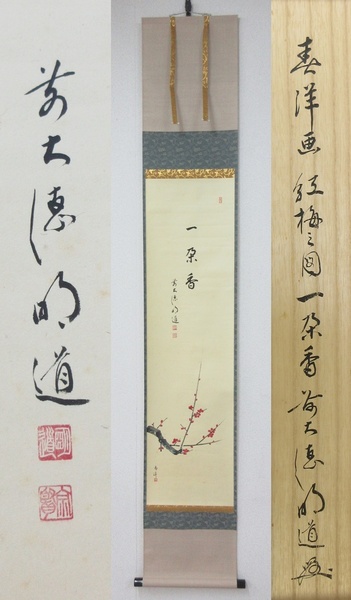 前大徳明道
一朶香
前大徳明道
春洋画 紅梅之図 一朶香 前大徳明道